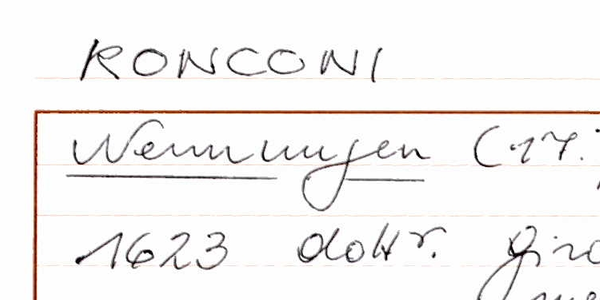 RONCONI
Wemmingen (17.
1623 doktr. giro